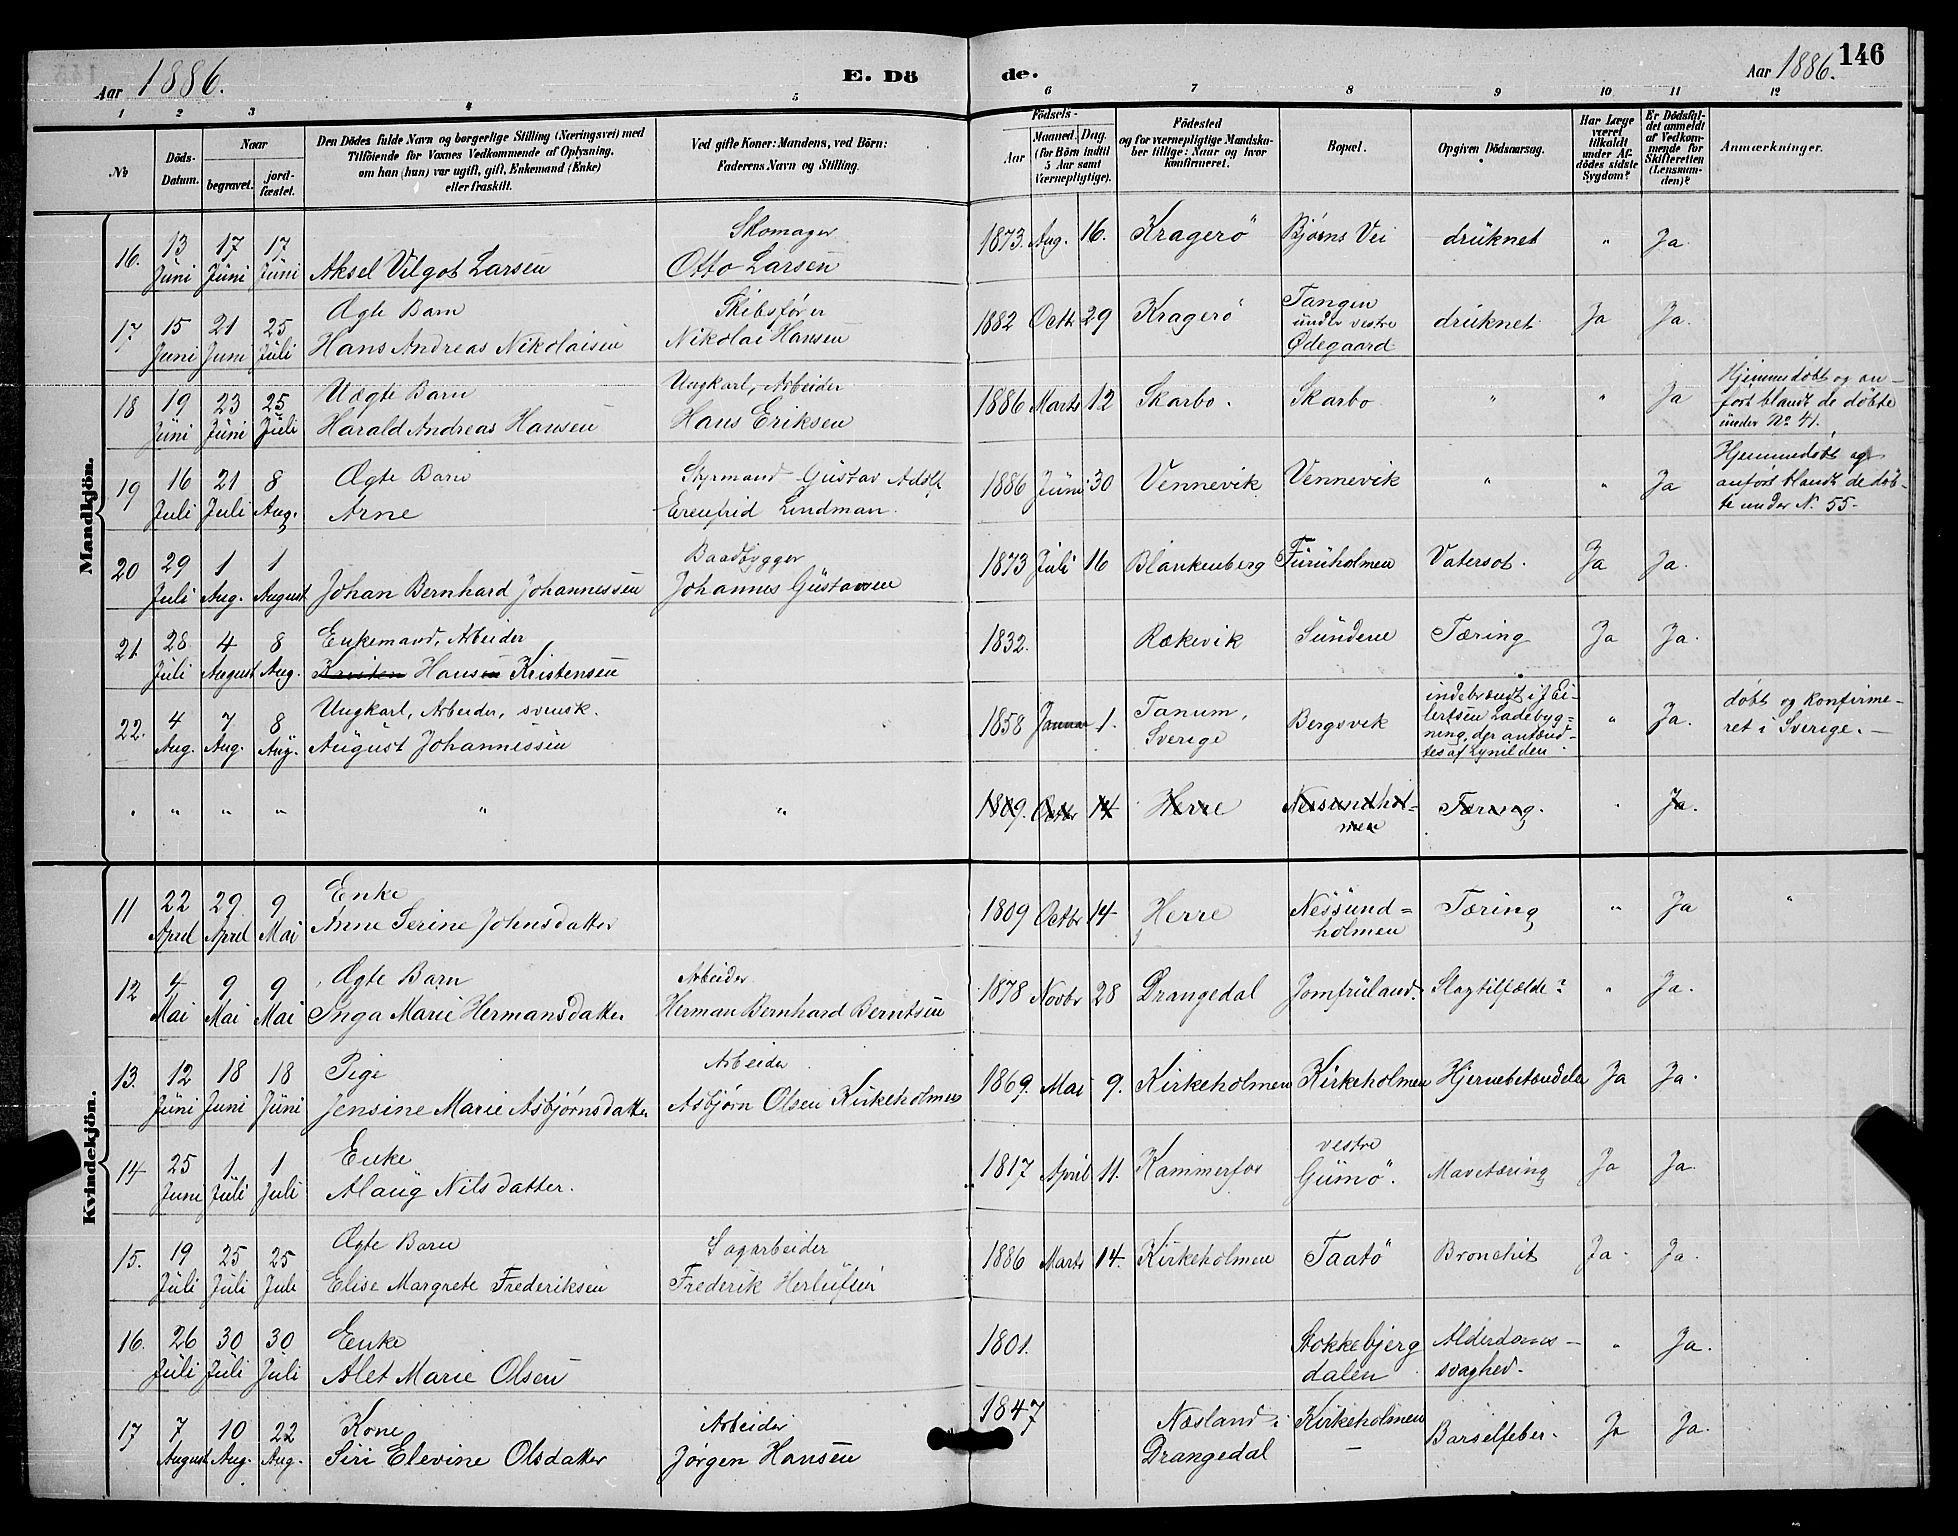 146
Aar 1886.
E. Dö de.
Aar 1886.
1 2 3 4 5 6 7 8 9 10 11 12
№
Döds-Datum.
Naar
begravet.
jord-fæstet.
Den Dödes fulde Navn og borgerlige Stilling (Næringsvei) med
Tilföiende for Voxnes Vedkommende af Oplysning,
om han (hun) var ugift, gift, Enkemand (Enke)
eller fraskilt.
Ved gifte Koner: Mandens, ved Börn:
Faderens Navn og Stilling.
Födsels-
Aar
Maaned. Dag.
(for Börn indtil
5 Aar samt
Værnepligtige).
Födested
og for værnepligtige Mandska-
ber tillige: Naar og hvor
konfirmeret.
Bopæl.
Opgiven Dödsaarsag.
Har Læge
været
tilkaldt
under Af-
dödes sidste
Sygdom?
Er Dödsfal-
det anmeldt
af Vedkom-
mende for
Skifteretten
(Lensman-
den)?
Anmærkninger.
Mandkjön.
16. 13 Juni 17 Juni 17 Juni Aksel Vilgot Larsen Skomager Otto Larsen 1873. Aug. 16. Kragerö Bjørns Vei druknet " Ja.
17 15 Juni 21 Juni 25 Juli Ægte Barn Hans Andreas Nikolaisen Skibsfører Nikolai Hansen 1882 Octb 29 Kragerö Tangen under vestre Ødegaard druknet Ja Ja.
18 19 Juni 23 Juni 25 Juli Uægte Barn Harald Andreas Hansen Ungkarl, Arbeider Hans Eriksen 1886 Marts 12 Skarbo. Skarbo " " Ja Hjemmedøbt og an-
ført blandt de døbte
under No 41.
19 16 Juli 21 Juli 8 Aug. Ægte Barn Arne Styrmand Gustav Adolf Erenfrid Lindman. 1886 Juni 30 Vennevik Vennevik " " Ja Hjemmedøbt og
anført blandt de døb-
te under N. 55.
20 29 Juli 1 Aug. 1 August Johan Bernhard Johannessen Baadbygger Johannes Gustavsen 1873 Juli 16 Blankenberg Furuholmen Vatersot. Ja Ja.
21 28 Juli 4 August 8 Aug. Enkemand, Arbeider Kristen Hansen Kristensen 1832. Rækevik Sundene Tæring Ja Ja.
22. 4 Aug. 7 Aug. 8 Aug. Ungkarl, Arbeider, svensk. August Johannessen 1858 Januar 1. Tanum, Sverige Bergsvik indebrændt i J Ei-
lertsen Ladebyg-
ning, der antænd-
tes af Lynilden. " Ja. døbt og konfirme-
ret i Sverige.
" " " " " " 1809. Octbr 14 Herre Nesundhol-
men Tæring. " Ja.
Kvindekjön.
11 22 April 29 April 9 Mai Enke Anne Serine Johnsdatter 1809 Octbr 14 Herre Nessund=
holmen Tæring " Ja "
12 4 Mai 9 Mai 9 Mai Ægte Barn Inga Marie Hermansdatter Arbeider Herman Bernhard Berntsen 1878 Novbr 28 Drangedal Jomfruland. Slagtilfælde? " Ja.
13. 12 Juni 18 Juni 18 Juni Pige Jensine Marie Asbjørnsdatter Arbeider Asbjørn Olsen Kirkeholmen 1869. Mai 9. Kirkeholmen Kirkeholmen Hjernebetændelse Ja Ja.
14 25 Juni 1 Juli 1 Juli Enke Alaug Nilsdatter. 1817 April 11. Kammerfos vestre Gumö. Mavetæring Ja Ja.
15. 19 Juli 25 Juli 25 Juli Ægte Barn Elise Margrete Frederiksen Sagarbeider Frederik Herlufsen 1886 Marts 14. Kirkeholmen Taatö Bronchit Ja. Ja.
16. 26 Juli 30 Juli 30 Juli Enke Alet Marie Olsen 1801. Stokkebjerg dalen Alderdoms-
svaghed. " Ja.
17 7 August 10 Aug. 22 Aug. Kone Siri Elevine Olsdatter Arbeider Jørgen Hansen 1847 Næsland i Drangedal Kirkeholmen Barselfeber. Ja Ja.